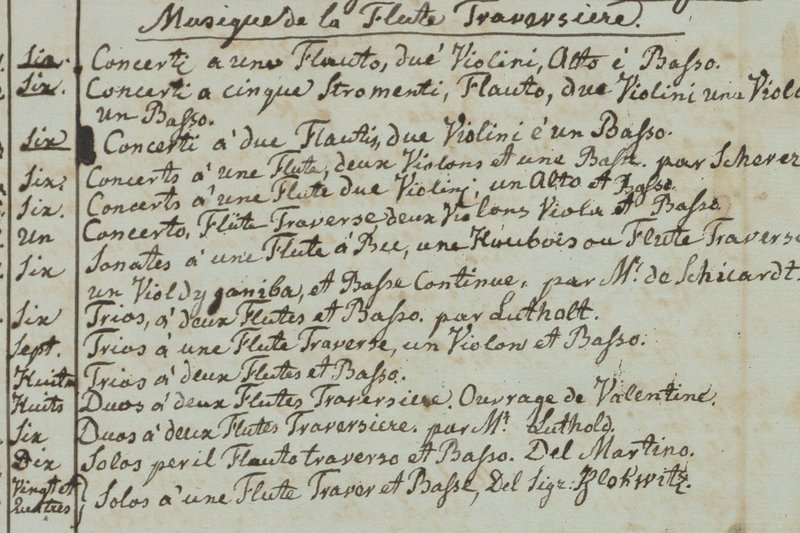 Musique de la Flute Traversiere.
Six. Concerti a une Flauto, due Violini, Alto é Basso.
Six. Concerti a cinque Stromenti, Flauto, due Violini una Viola
un Basso.
Six Concerti á due Flautis, due Violini é un Basso.
Six. Concerts á une Flute, deux Violons et une Basse. par Scherer
Six. Concerts á une Flute due Violini, un Alto et Basso.
Un Concerto, Flüte Traverse deux Violons Viola et Basso
Six Sonates á une Flute á Bec, une Haubois ou Flute Traverse
un Viol di ganiba, et Basse Continue. par Mr. de Schicardt.
Six Trios, á deux Flutes et Basso. par Lutholt.
Sept. Trios á une Flute Traverse, un Violon et Basso.
Huit Trios á deux Flutes et Basso.
Huits Duos á deux Flutes Traversiere. Ouvrage de Valentine.
Six Duos á deux Flutes Traversiere. par Mr. Luthold.
Dix Solos per il Flauto traverso et Basso. Del Martino.
Vingt et
quattres } Solos á une Flute Traver et Basse, Del Sigr: Blokwitz.